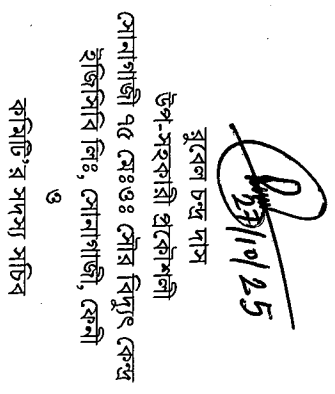 27/10/25
রুবেল চন্দ্র দাস
উপ-সহকারী প্রকৌশলী
সোনাগাজী ৭৫ মেঃওঃ সৌর বিদ্যুৎ কেন্দ্র
ইজিসিবি লিঃ, সোনাগাজী, ফেনী
ও
কমিটি'র সদস্য সচিব